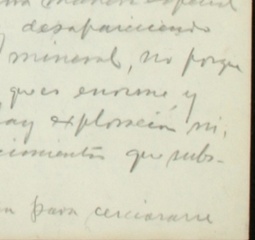 desapareciendo
mineral, no porque
que es enorme y
hay exploración ni
cimientos que subs-
para cerciorarse